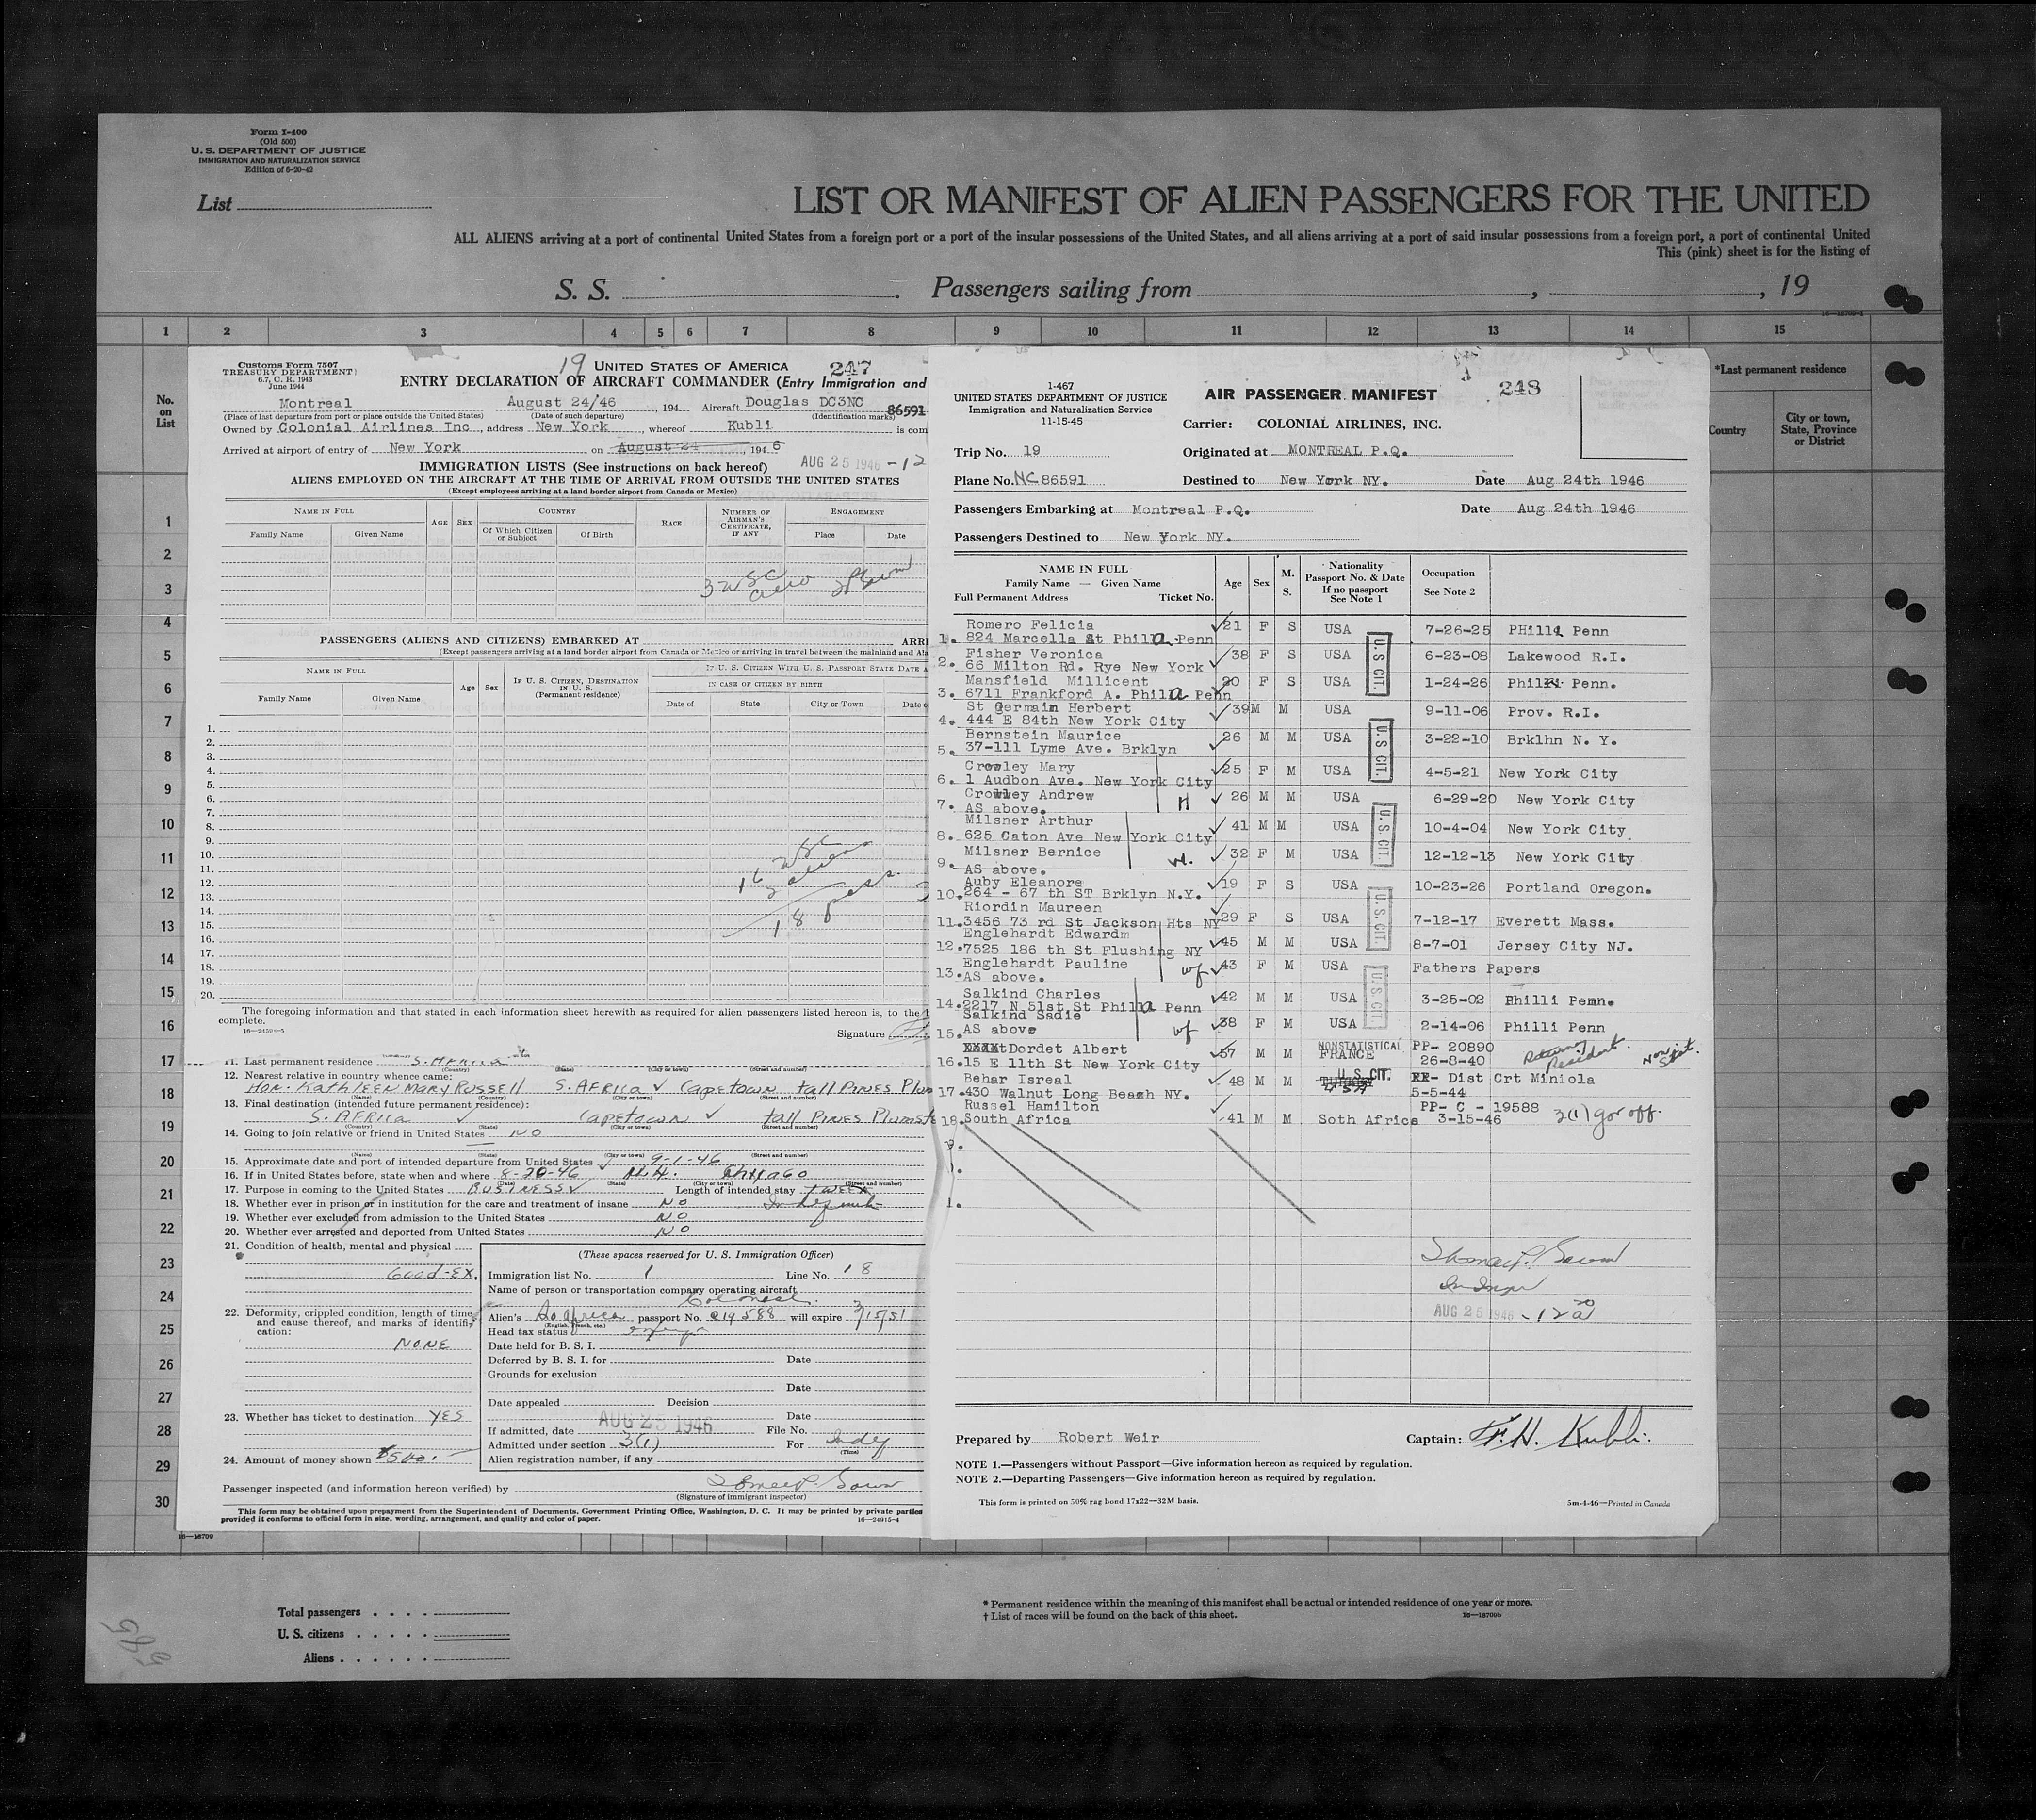 Form I-400
(Old 500)
U. S. DEPARTMENT OF JUSTICE
IMMIGRATION AND NATURALIZATION SERVICE
Edition of 6-20-42
List
LIST OR MANIFEST OF ALIEN PASSENGERS FOR THE UNITED
ALL ALIENS arriving at a port of continental United States from a foreign port or a port of the insular possessions of the United States, and all aliens arriving at a port of said insular possessions from a foreign port, a port of continental United
This (pink) sheet is for the listing of
S. S. . Passengers sailing from , , 19
1 2 3 4 5 6 7 8 9 10 11 12 13 14 15
No. on List
*Last permanent residence
Country
City or town, State, Province or District
1
2
3
4
5
6
7
8
9
10
11
12
13
14
15
16
17
18
19
20
21
22
23
24
25
26
27
28
29
30
Customs Form 7507
TREASURY DEPARTMENT
6.7, C. R. 1943
June 1944
19 UNITED STATES OF AMERICA 247
ENTRY DECLARATION OF AIRCRAFT COMMANDER (Entry Immigration and
Montreal August 24/46 , 194 Aircraft Douglas DC3NC 86591
(Place of last departure from port or place outside the United States) (Date of such departure) (Identification marks)
Owned by Colonial Airlines Inc , address New York , whereof Kubli is com
Arrived at airport of entry of New York on August 24 , 194 6
AUG 25 1946 - 12
IMMIGRATION LISTS (See instructions on back hereof)
ALIENS EMPLOYED ON THE AIRCRAFT AT THE TIME OF ARRIVAL FROM OUTSIDE THE UNITED STATES
(Except employees arriving at a land border airport from Canada or Mexico)
NAME IN FULL AGE SEX COUNTRY RACE NUMBER OF AIRMAN'S CERTIFICATE, IF ANY ENGAGEMENT
Family Name Given Name Of Which Citizen or Subject Of Birth Place Date
3 USC
Crew
PASSENGERS (ALIENS AND CITIZENS) EMBARKED AT ARRI
(Except passengers arriving at a land border airport from Canada or Mexico or arriving in travel between the mainland and Ala
NAME IN FULL Age Sex IF U. S. CITIZEN, DESTINATION IN U. S. (Permanent residence) IF U. S. CITIZEN WITH U. S. PASSPORT STATE DATE A
IN CASE OF CITIZEN BY BIRTH
Family Name Given Name Date of State City or Town Date o
1.
2.
3.
4.
5.
6.
7.
8.
9.
10.
11.
12.
13.
14.
15.
16.
17.
18.
19.
20.
16 USC
2 aliens
18 pass.
The foregoing information and that stated in each information sheet herewith as required for alien passengers listed hereon is, to the
complete.
16—24504-5
Signature
11. Last permanent residence S. AFRICA
(Country) (State) (City or town) (Street and number)
12. Nearest relative in country whence came:
HON. KATHLEEN MARY RUSSELL S. AFRICA CAPETOWN TALL PINES PLUM
(Name) (Country) (City or town) (Street and number)
13. Final destination (intended future permanent residence):
S. AFRICA CAPETOWN TALL PINES PLUMSTE
(Country) (State) (City or town) (Street and number)
14. Going to join relative or friend in United States NO
(Name) (State) (City or town) (Street and number)
15. Approximate date and port of intended departure from United States 9-1-46
16. If in United States before, state when and where 8-20-46 N.Y. CHICAGO
(Date) (State) (City or town) (Street and number)
17. Purpose in coming to the United States BUSINESS Length of intended stay 1 WEEK
18. Whether ever in prison or in institution for the care and treatment of insane NO
19. Whether ever excluded from admission to the United States NO
20. Whether ever arrested and deported from United States NO
21. Condition of health, mental and physical
Good-EX.
22. Deformity, crippled condition, length of time and cause thereof, and marks of identification:
NONE
23. Whether has ticket to destination YES
24. Amount of money shown $500.
(These spaces reserved for U. S. Immigration Officer)
Immigration list No. 1 Line No. 18
Name of person or transportation company operating aircraft
Colonial.
Alien's So Africa passport No. C19588 will expire 3/15/51
(English, French, etc.)
Head tax status
Date held for B. S. I.
Deferred by B. S. I. for Date
Grounds for exclusion
Date
Date appealed Decision
Date
If admitted, date AUG 25 1946 File No.
Admitted under section 3(1) For Indef
(Time)
Alien registration number, if any
Passenger inspected (and information hereon verified) by
(Signature of immigrant inspector)
This form may be obtained upon prepayment from the Superintendent of Documents, Government Printing Office, Washington, D. C. It may be printed by private parties
provided it conforms to official form in size, wording, arrangement, and quality and color of paper.
16—24915-4
16—18709
1-467
UNITED STATES DEPARTMENT OF JUSTICE
Immigration and Naturalization Service
11-15-45
AIR PASSENGER MANIFEST 248
Carrier: COLONIAL AIRLINES, INC.
Trip No. 19 Originated at MONTREAL P.Q.
Plane No. NC 86591 Destined to New York NY. Date Aug 24th 1946
Passengers Embarking at Montreal P.Q. Date Aug 24th 1946
Passengers Destined to New York NY.
NAME IN FULL
Family Name — Given Name
Full Permanent Address Ticket No.
Age Sex M. S.
Nationality Passport No. & Date If no passport See Note 1
Occupation See Note 2
Romero Felicia 21 F S USA 7-26-25 PHilli Penn
1. 824 Marcella St Philla Penn
Fisher Veronica 38 F S USA 6-23-08 Lakewood R.I.
2. 66 Milton Rd. Rye New York
Mansfield Millicent 20 F S USA 1-24-26 Phili Penn.
3. 6711 Frankford A. Phila Penn
St Germain Herbert 39 M M USA 9-11-06 Prov. R.I.
4. 444 E 84th New York City
Bernstein Maurice 26 M M USA 3-22-10 Brklhn N. Y.
5. 37-111 Lyme Ave. Brklyn
Crowley Mary 25 F M USA 4-5-21 New York City
6. 1 Audbon Ave. New York City
Crowley Andrew H 26 M M USA 6-29-20 New York City
7. AS above.
Milsner Arthur 41 M M USA 10-4-04 New York City
8. 625 Caton Ave New York City
Milsner Bernice 32 F M USA 12-12-13 New York City
9. AS above.
Auby Eleanore 19 F S USA 10-23-26 Portland Oregon.
10. 264 - 67 th ST Brklyn N.Y.
Riordin Maureen 29 F S USA 7-12-17 Everett Mass.
11. 3456 73 rd St Jackson Hts NY
Englehardt Edwardm 45 M M USA 8-7-01 Jersey City NJ.
12. 7525 186 th St Flushing NY
Englehardt Pauline wf 43 F M USA Fathers Papers
13. AS above.
Salkind Charles 42 M M USA 3-25-02 Philli Penn.
14. 2217 N 51st St Philla Penn
Salkind Sadie wf 38 F M USA 2-14-06 Philli Penn
15. AS above
Dordet Albert 57 M M NONSTATISTICAL FRANCE PP- 20890 26-8-40 Returning Resident. Non Stat.
16. 15 E 11th St New York City
Behar Isreal 48 M M U.S. CIT. USA Dist Crt Miniola 5-5-44
17. 430 Walnut Long Beach NY.
Russel Hamilton 41 M M Soth Africa PP- C - 19588 3-15-46 3(1) gov off.
18. South Africa
U S CIT.
U.S CIT.
U. S CIT.
U.S CIT.
U.S CIT
AUG 25 1946 - 12 20 a
Prepared by Robert Weir Captain: F.H. Kubli.
NOTE 1.—Passengers without Passport—Give information hereon as required by regulation.
NOTE 2.—Departing Passengers—Give information hereon as required by regulation.
This form is printed on 50% rag bond 17x22—32M basis. 5m-4-46—Printed in Canada
Total passengers
U. S. citizens
Aliens
* Permanent residence within the meaning of this manifest shall be actual or intended residence of one year or more.
† List of races will be found on the back of this sheet. 16—18709b